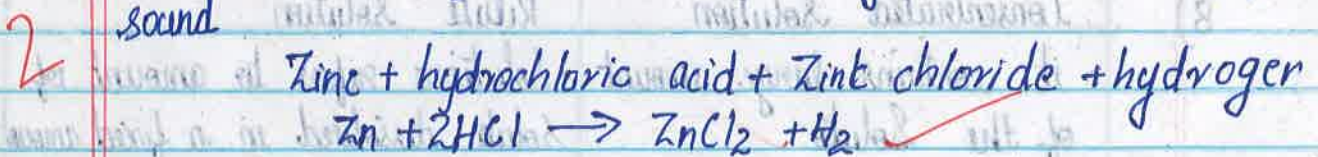 sound
2 Zinc + hydrochloric acid + Zink chloride + hydroger
Zn + 2HCl → ZnCl2 + H2